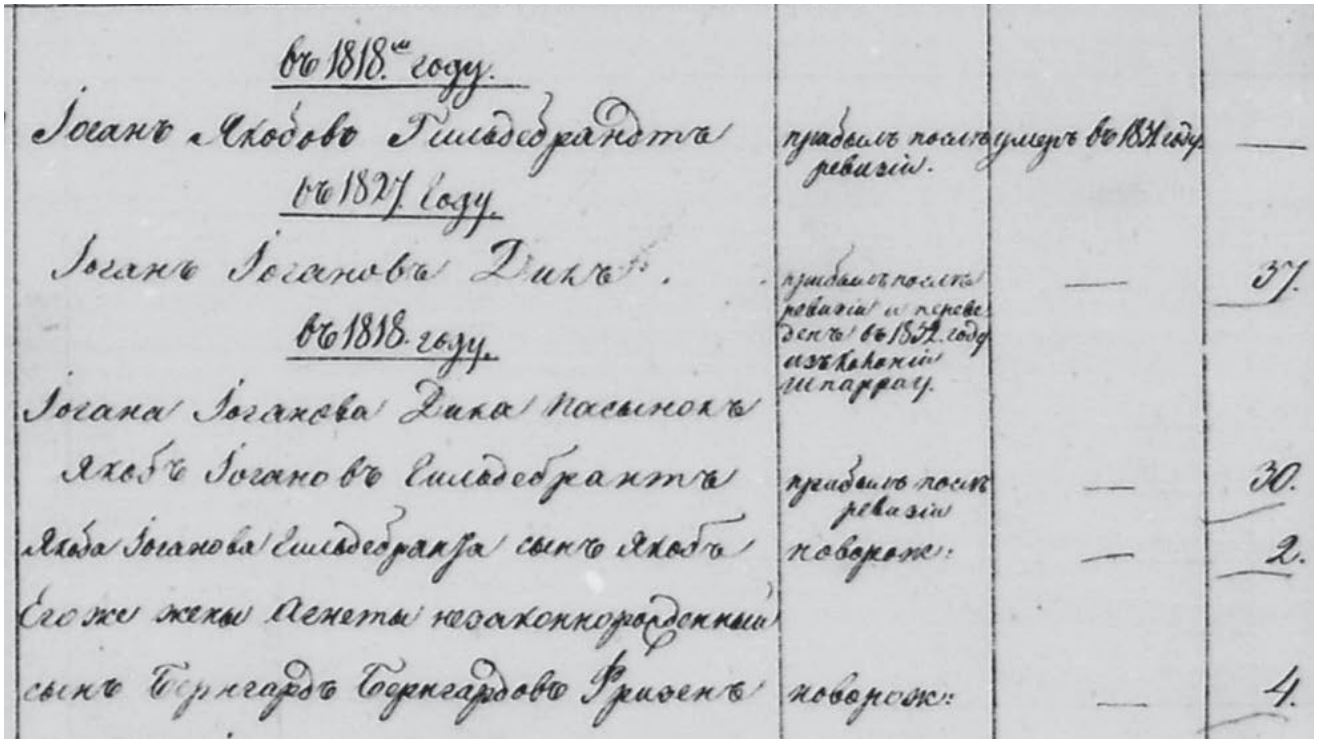 въ 1818.м году.
Іоганъ Якобовъ Гильдебрандтъ прибылъ послѣ умеръ въ 1831 году —
ревизіи.
въ 1827 Году.
Іоганъ Іогановъ Дикъ. прибылъ послѣ — 37.
ревизіи и переве
денъ въ 1832. году
въ 1818. году.
изъ Колоніи
Шпаррау.
Іогана Іоганова Дика пасынокъ
Якобъ Іогановъ Гильдебрантъ прибылъ послѣ — 30.
ревизіи
Якоба Іоганова Гильдебранта сынъ Якобъ новорож: — 2.
Его же жены Агнеты незаконнорожденный
сынъ Бернгардъ Бернгардовъ Фризенъ новорож: — 4.